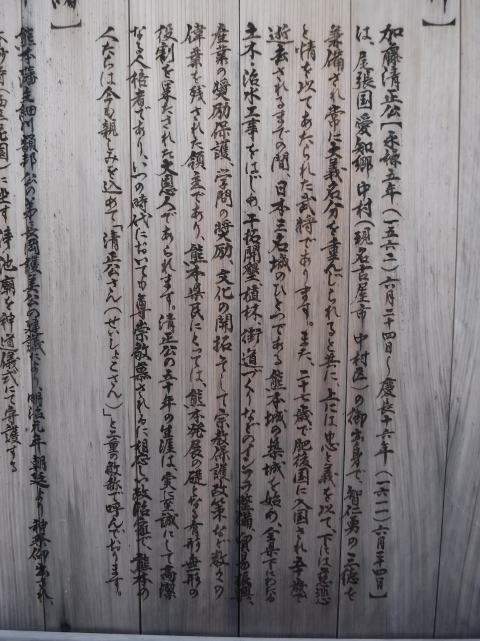 加藤清正公【永禄五年(一五六二)六月二十四日～慶長十六年(一六一一)六月二十四日】
は、尾張国愛知郷中村(現名古屋市中村区)の御出身で、智仁勇の三徳を
兼備され常に大義名分を重んじられると共に、上には忠と義を以て、下には慈悲
と情を以てあたられた武将であります。また、二十七歳で肥後国に入国され五十歳で
逝去されるまでの間、日本三名城のひとつである熊本城の築城を始め、全県下にわたる
土木・治水工事をはじめ、干拓開墾、植林、街道づくりなどのインフラ整備、貿易振興、
産業の奨励保護、学問の奨励、文化の開拓そして宗教保護政策など数々の
偉業を残された領主であり、熊本県民にとっては、熊本発展の礎となる有形無形の
役割を果たされた大恩人であられます。清正公の五十年の生涯は、常に至誠にして高潔
なる人格者であり、いつの時代においても尊崇敬慕されるに相応しい政治家で、熊本の
人たちは今も親しみを込めて「清正公さん(せいしょこさん)」と二重の敬称で呼んでおります。
熊本藩主細川韶邦公の弟長岡護美公の建議により明治元年朝廷より神祭仰出され、
に坐す浄池廟を神道儀式にて守護する